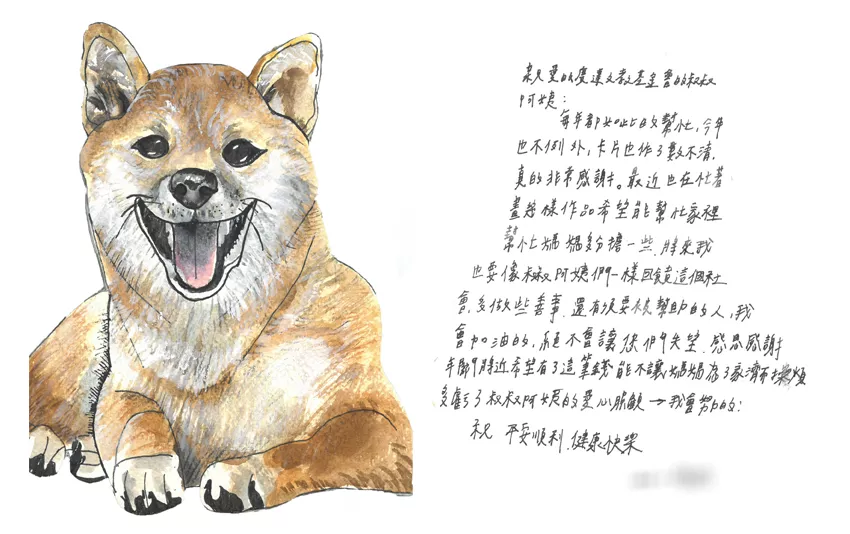 親愛的廣達文教基金會的叔叔
阿姨:
每年都如此的幫忙,今年
也不例外,卡片也作了數不清,
真的非常感謝。最近也在忙著
畫各樣作品希望能幫忙家裡
幫忙媽媽多分擔一些.將來我
也要像叔叔阿姨們一樣回饋這個社
會,多做些善事.還有須要被幫助的人,我
會加油的,絕不會讓你們失望.感恩感謝
年關將近希望有了這筆錢能不讓媽媽為了家濟而操煩
多虧了叔叔阿姨的愛心脤顧→我會努力的:
祝 平安順利.健康快樂